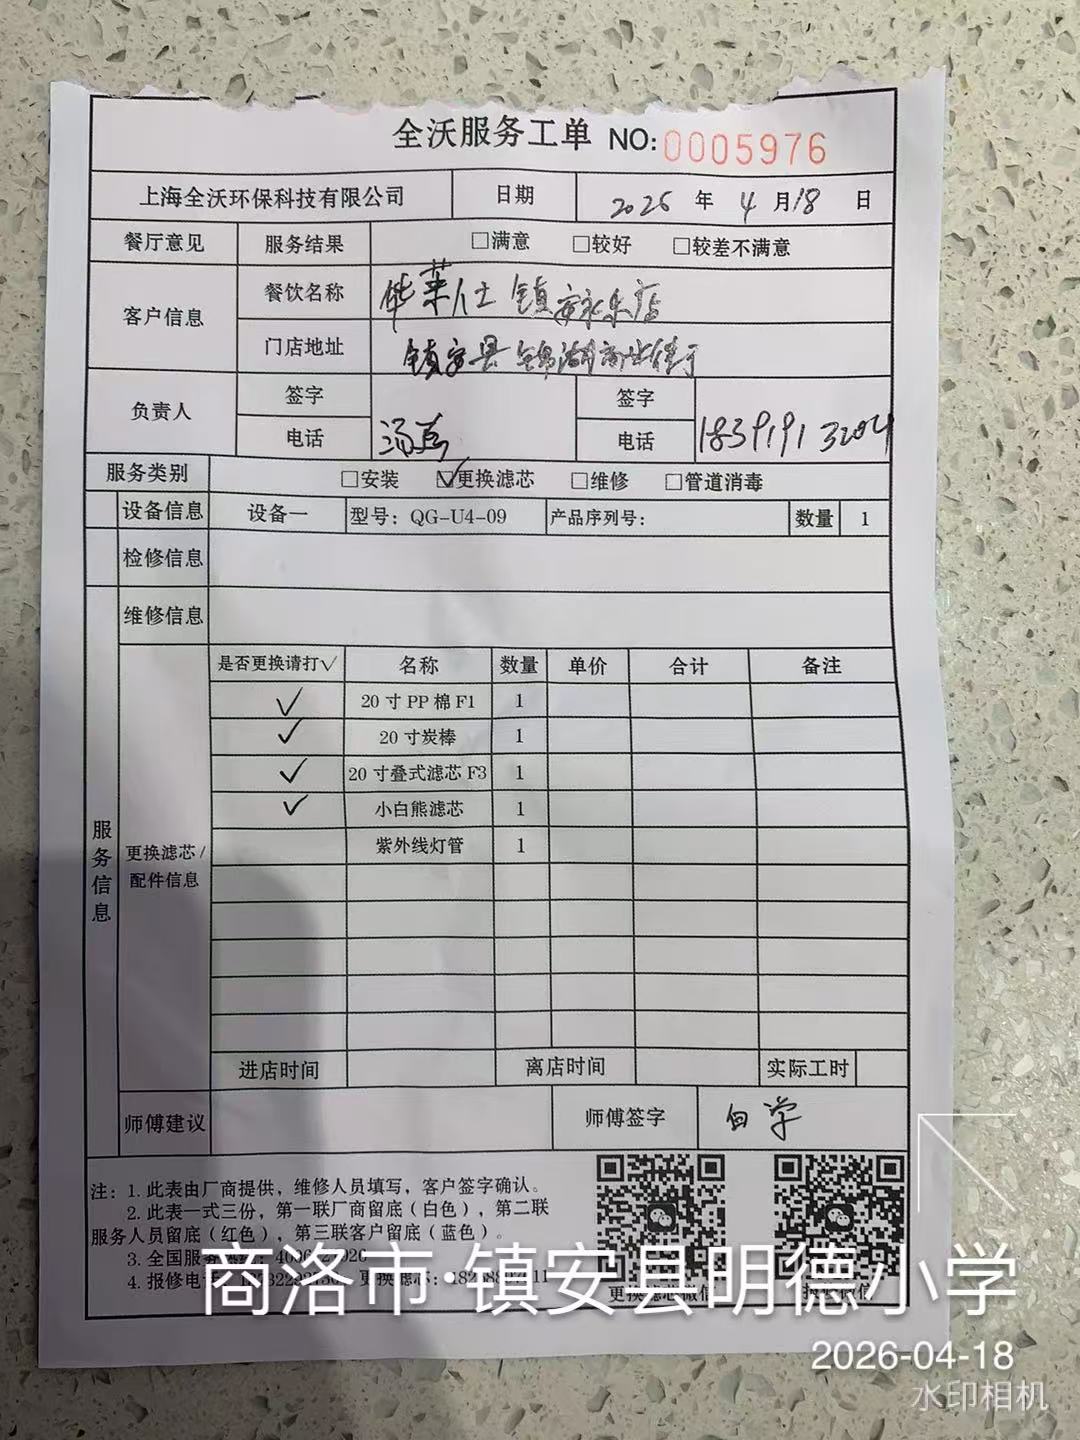 全沃服务工单 NO:0005976
上海全沃环保科技有限公司 日期 2026 年 4 月 18 日
餐厅意见 服务结果 □满意 □较好 □较差不满意
客户信息 餐饮名称 华莱士 镇安永乐店
门店地址 镇安县
负责人 签字 签字
电话 汤 电话 183919132
服务类别 □安装 ☑更换滤芯 □维修 □管道消毒
设备信息 设备一 型号: QG-U4-09 产品序列号: 数量 1
检修信息
维修信息
服务信息
更换滤芯/
配件信息
是否更换请打√ 名称 数量 单价 合计 备注
✓ 20寸PP棉F1 1
✓ 20寸炭棒 1
✓ 20寸叠式滤芯F3 1
✓ 小白熊滤芯 1
紫外线灯管 1
进店时间 离店时间 实际工时
师傅建议 师傅签字 白学
注: 1. 此表由厂商提供，维修人员填写，客户签字确认。
2. 此表一式三份，第一联厂商留底(白色)，第二联
服务人员留底(红色)，第三联客户留底(蓝色)。
3. 全国服
4. 报修电 更换滤芯:
商洛市 镇安县明德小学
2026-04-18
水印相机